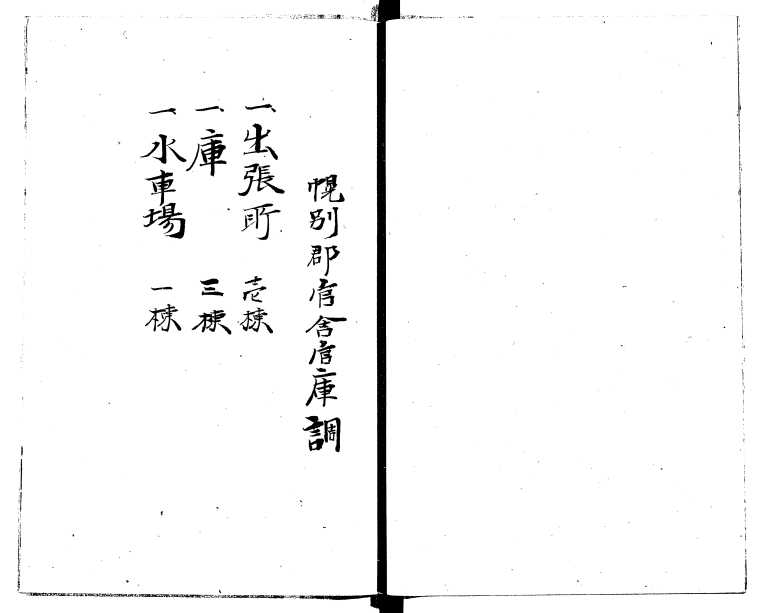 幌別郡官舎官庫調
一、出張所 壱棟
一、庫 三棟
一、水車場 一棟